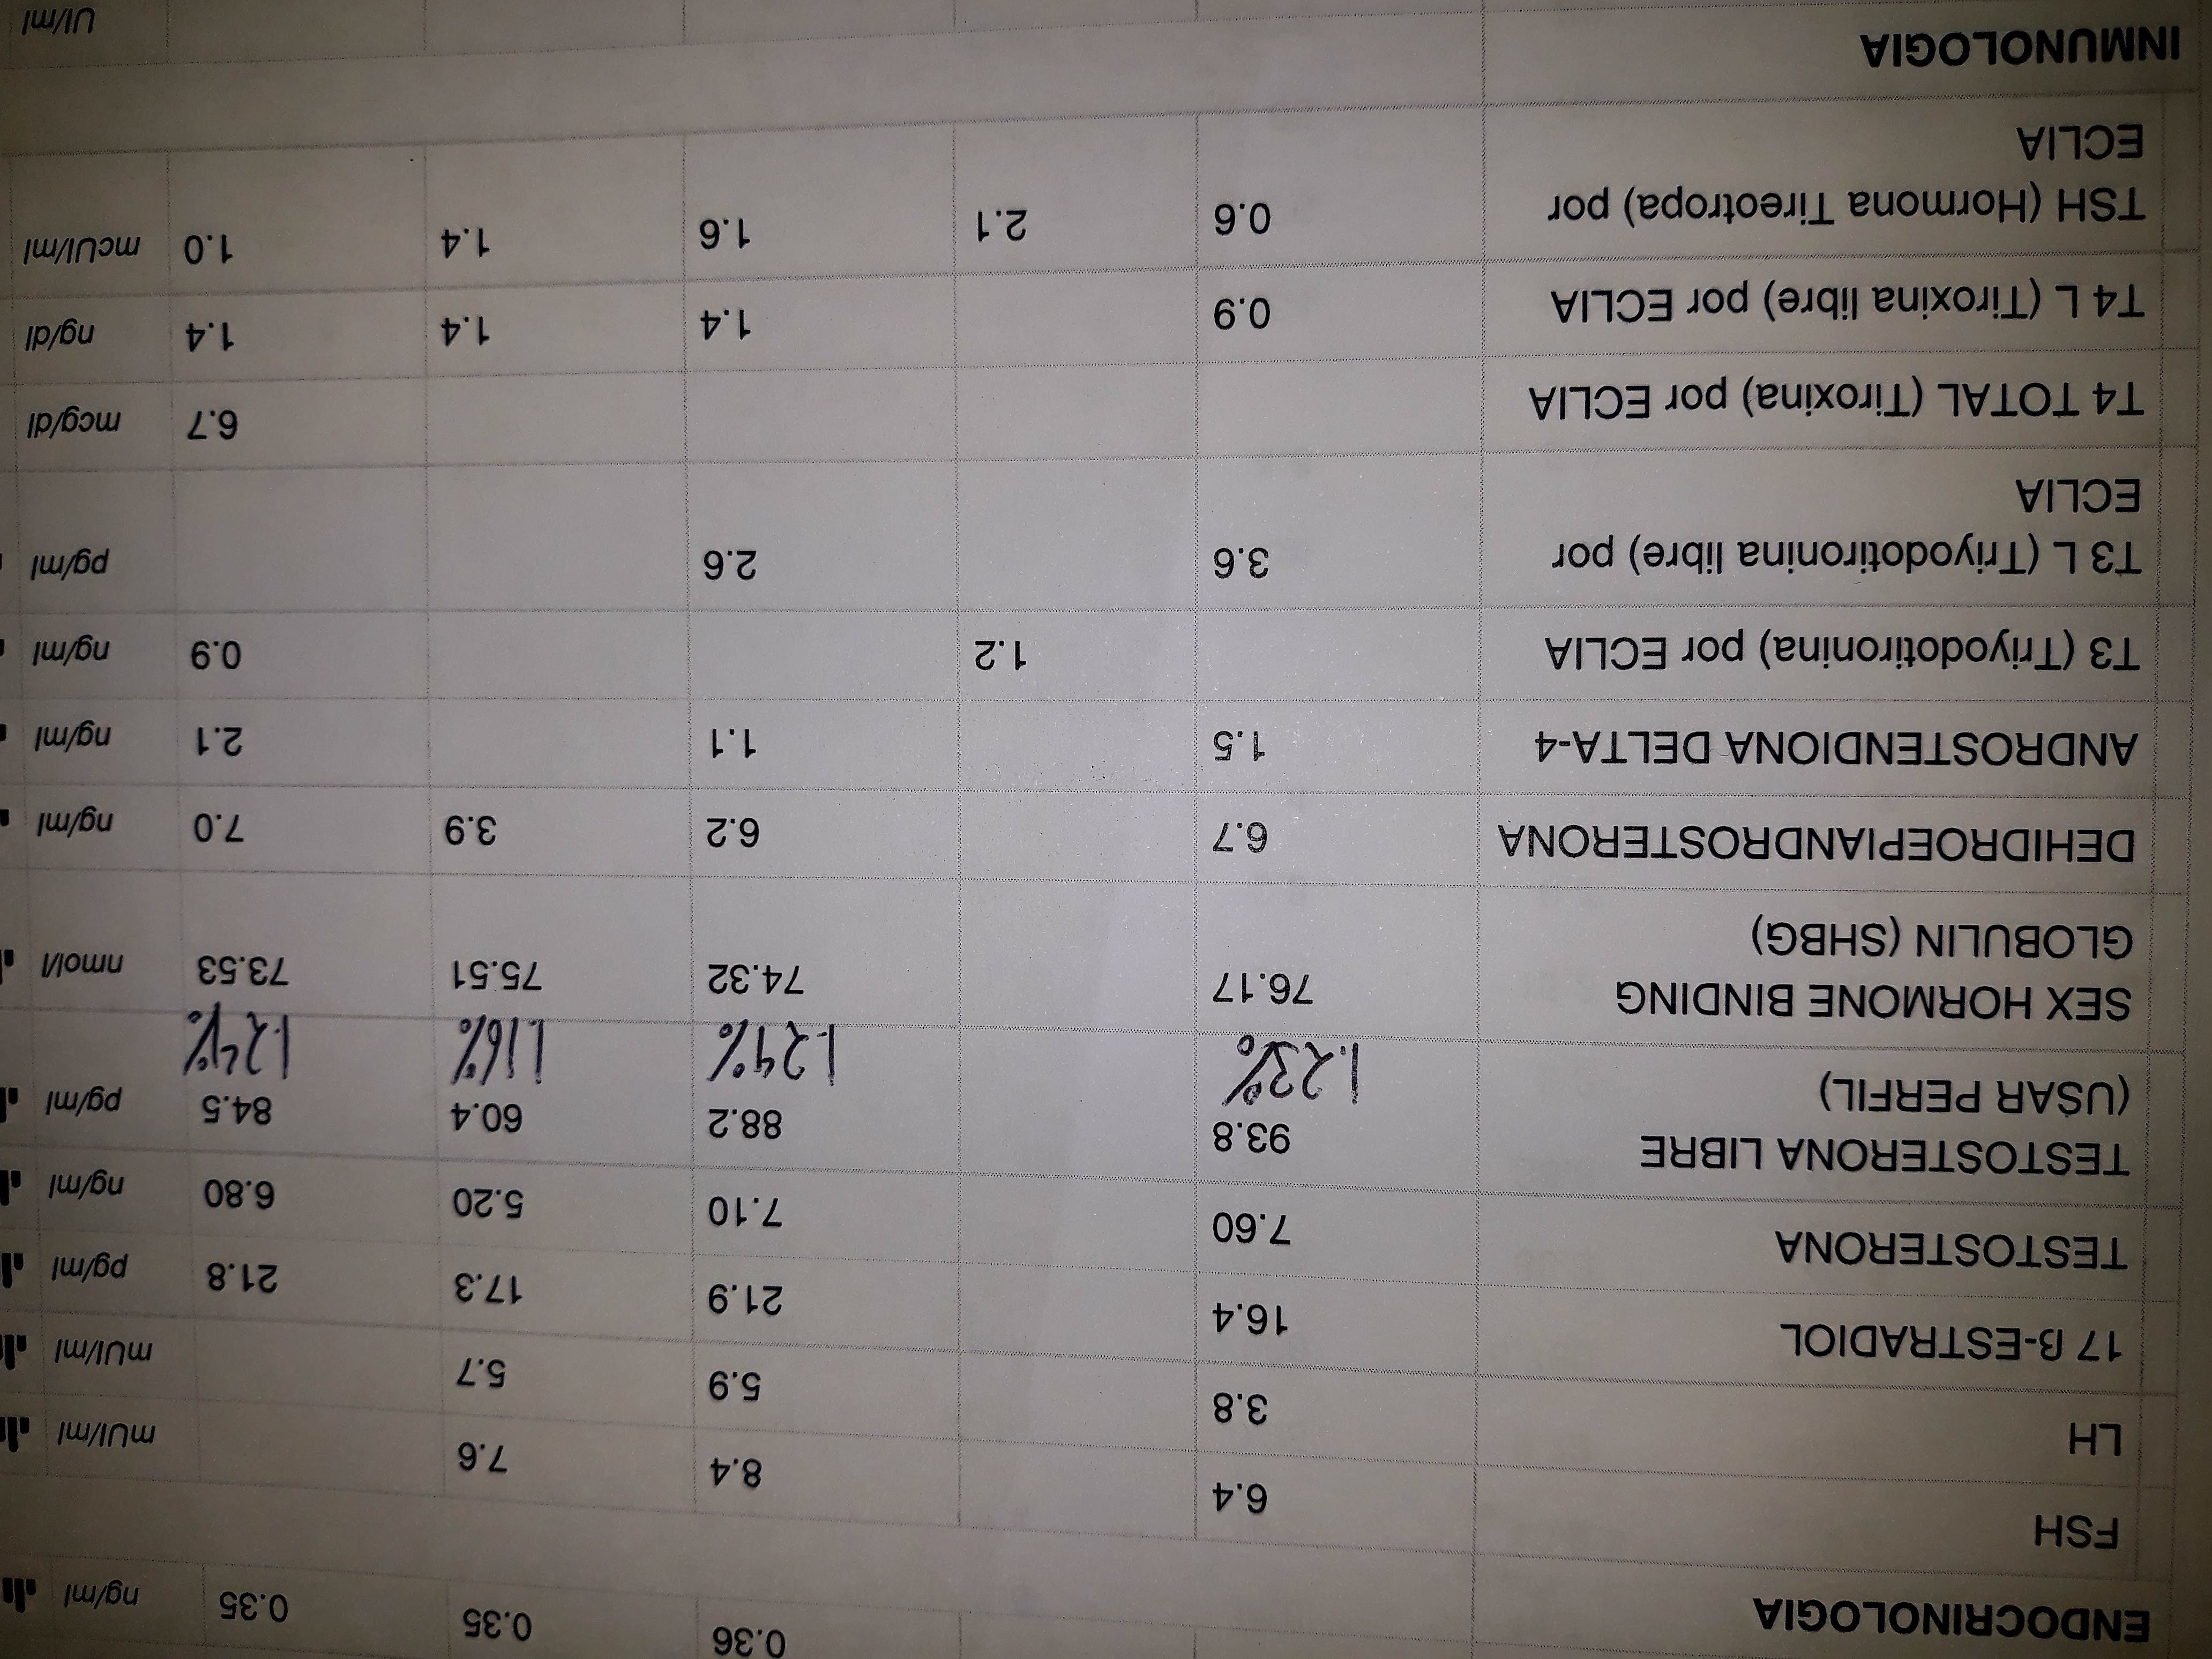 0.36 0.35 0.35 ng/ml
ENDOCRINOLOGIA
FSH 6.4 8.4 7.6 mUI/ml
LH 3.8 5.9 5.7 mUI/ml
17 β-ESTRADIOL 16.4 21.9 17.3 21.8 pg/ml
TESTOSTERONA 7.60 7.10 5.20 6.80 ng/ml
TESTOSTERONA LIBRE 93.8 88.2 60.4 84.5 pg/ml
(USAR PERFIL) 1.23% 1.24% 1.16% 1.24%
SEX HORMONE BINDING 76.17 74.32 75.51 73.53 nmol/l
GLOBULIN (SHBG)
DEHIDROEPIANDROSTERONA 6.7 6.2 3.9 7.0 ng/ml
ANDROSTENDIONA DELTA-4 1.5 1.1 2.1 ng/ml
T3 (Triyodotironina) por ECLIA 1.2 0.9 ng/ml
T3 L (Triyodotironina libre) por 3.6 2.6 pg/ml
ECLIA
T4 TOTAL (Tiroxina) por ECLIA 6.7 mcg/dl
T4 L (Tiroxina libre) por ECLIA 0.9 1.4 1.4 1.4 ng/dl
TSH (Hormona Tireotropa) por 0.6 2.1 1.6 1.4 1.0 mcUI/ml
ECLIA
INMUNOLOGIA
UI/ml